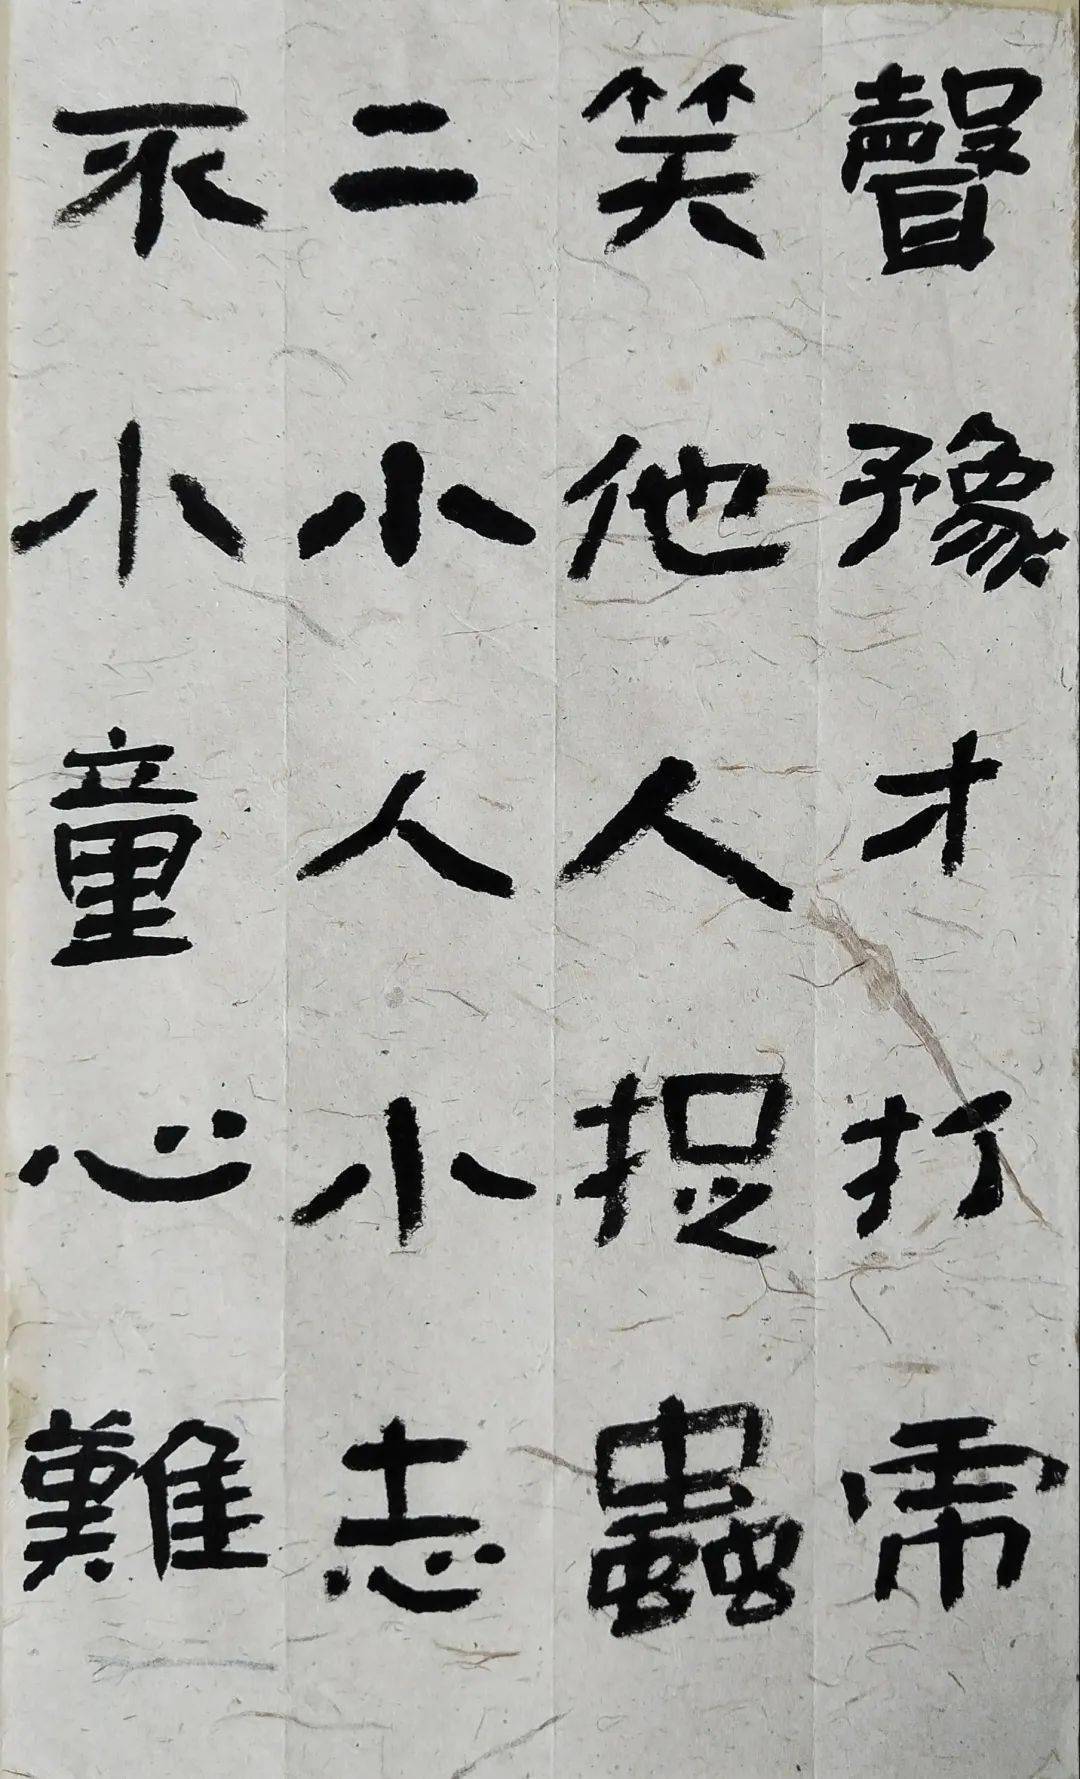 聲豫才打
笑他人捉蟲
二小人小志
不小童心難